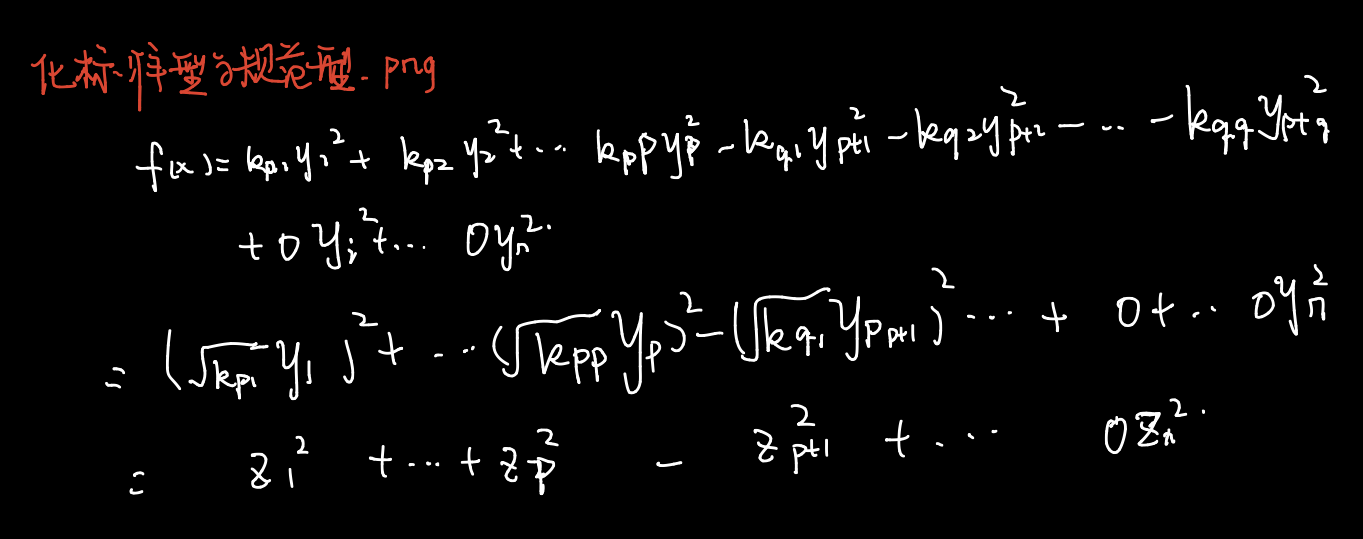 化标准型与规范型.png
f(x)=kp₁y₁²+ kp₂y₂²+… kppyp²-kq₁yp+1²-kq₂yp+2²-…-kqqyp+q²
+0yi²+… 0yn².
= (√kp₁ y₁)²+…(√kpp yp)²-(√kq₁ ypp+1)²…+ 0+… 0yn²
= z₁² +…+zp² - zp+1² +… 0zn².